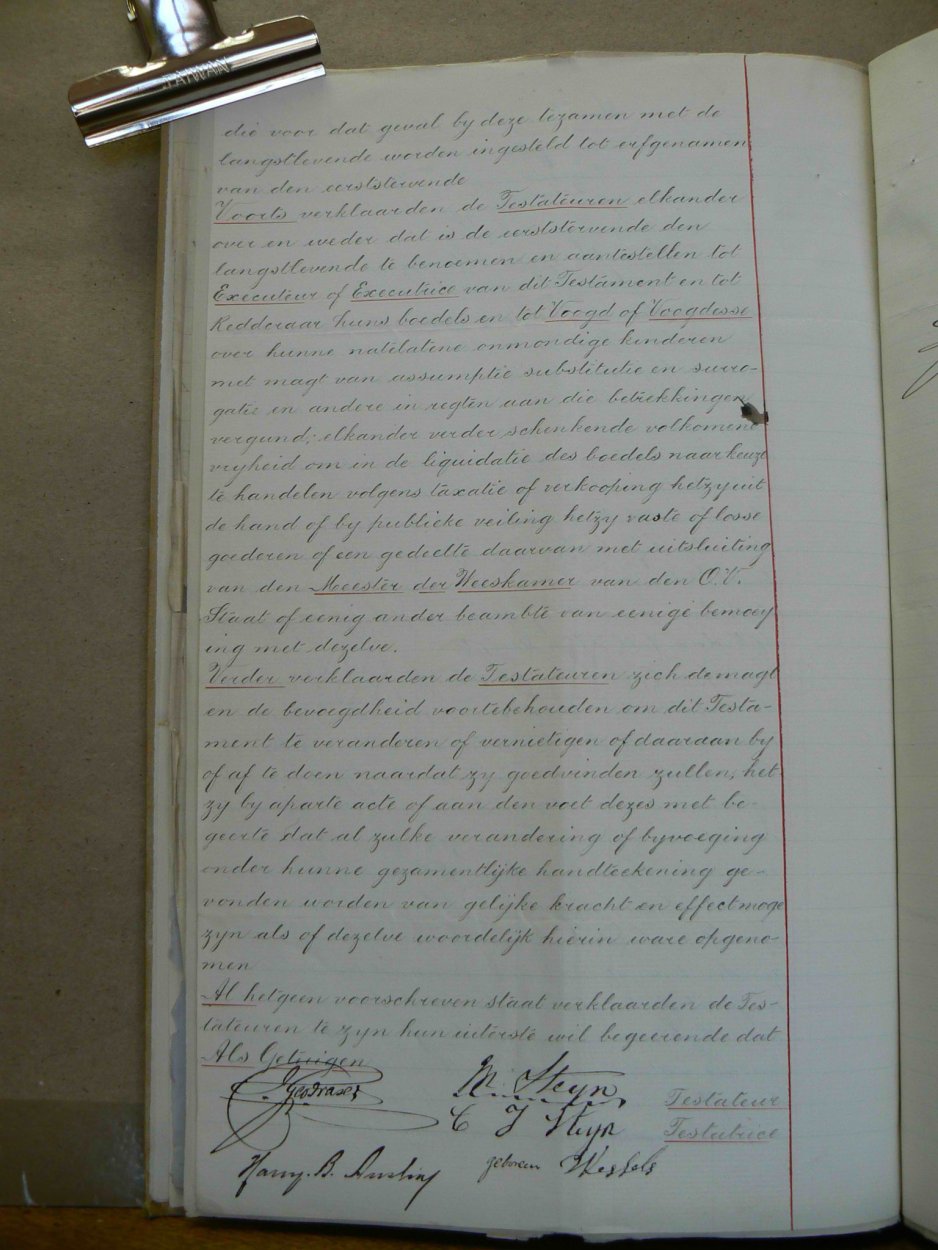 TAIWAN
die voor dat geval by deze tezamen met de
langstlevende worden ingesteld tot erfgenamen
van den eerststervende
Voorts verklaarden de Testateuren elkander
over en weder dat is de eerststervende den
langstlevende te benoemen en aantestellen tot
Executeur of Executrice van dit Testament en tot
Redderaar huns boedels en tot Voogd of Voogdesse
over hunne natelatene onmondige kinderen
met magt van assumptie substitutie en surro-
gatie en andere in regten aan die betrekkingen
vergund; elkander verder schenkende volkomene
vryheid om in de liquidatie des boedels naar keuze
te handelen volgens taxatie of verkooping hetzy uit
de hand of by publieke veiling hetzy vaste of losse
goederen of een gedeelte daarvan met uitsluiting
van den Meester der Weeskamer van den O.V.
Staat of eenig ander beambte van eenige bemoey
ing met dezelve.
Verder verklaarden de Testateuren zich de magt
en de bevoegdheid voortebehouden om dit Testa-
ment te veranderen of vernietigen of daaraan by
of af te doen naardat zy goedvinden zullen, het
zy by aparte acte of aan den voet dezes met be-
geerte dat al zulke verandering of byvoeging
onder hunne gezamentlijke handteekening ge-
vonden worden van gelijke kracht en effect moge
zyn als of dezelve woordelijk hierin ware opgeno-
men
Al hetgeen voorschreven staat verklaarden de Tes-
tateuren te zyn hun uiterste wil begeerende dat
Als Getuigen
Geo Fraser
M. Steyn Testateur
C J Steyn Testatrice
geboren Wessels
Harry. B.